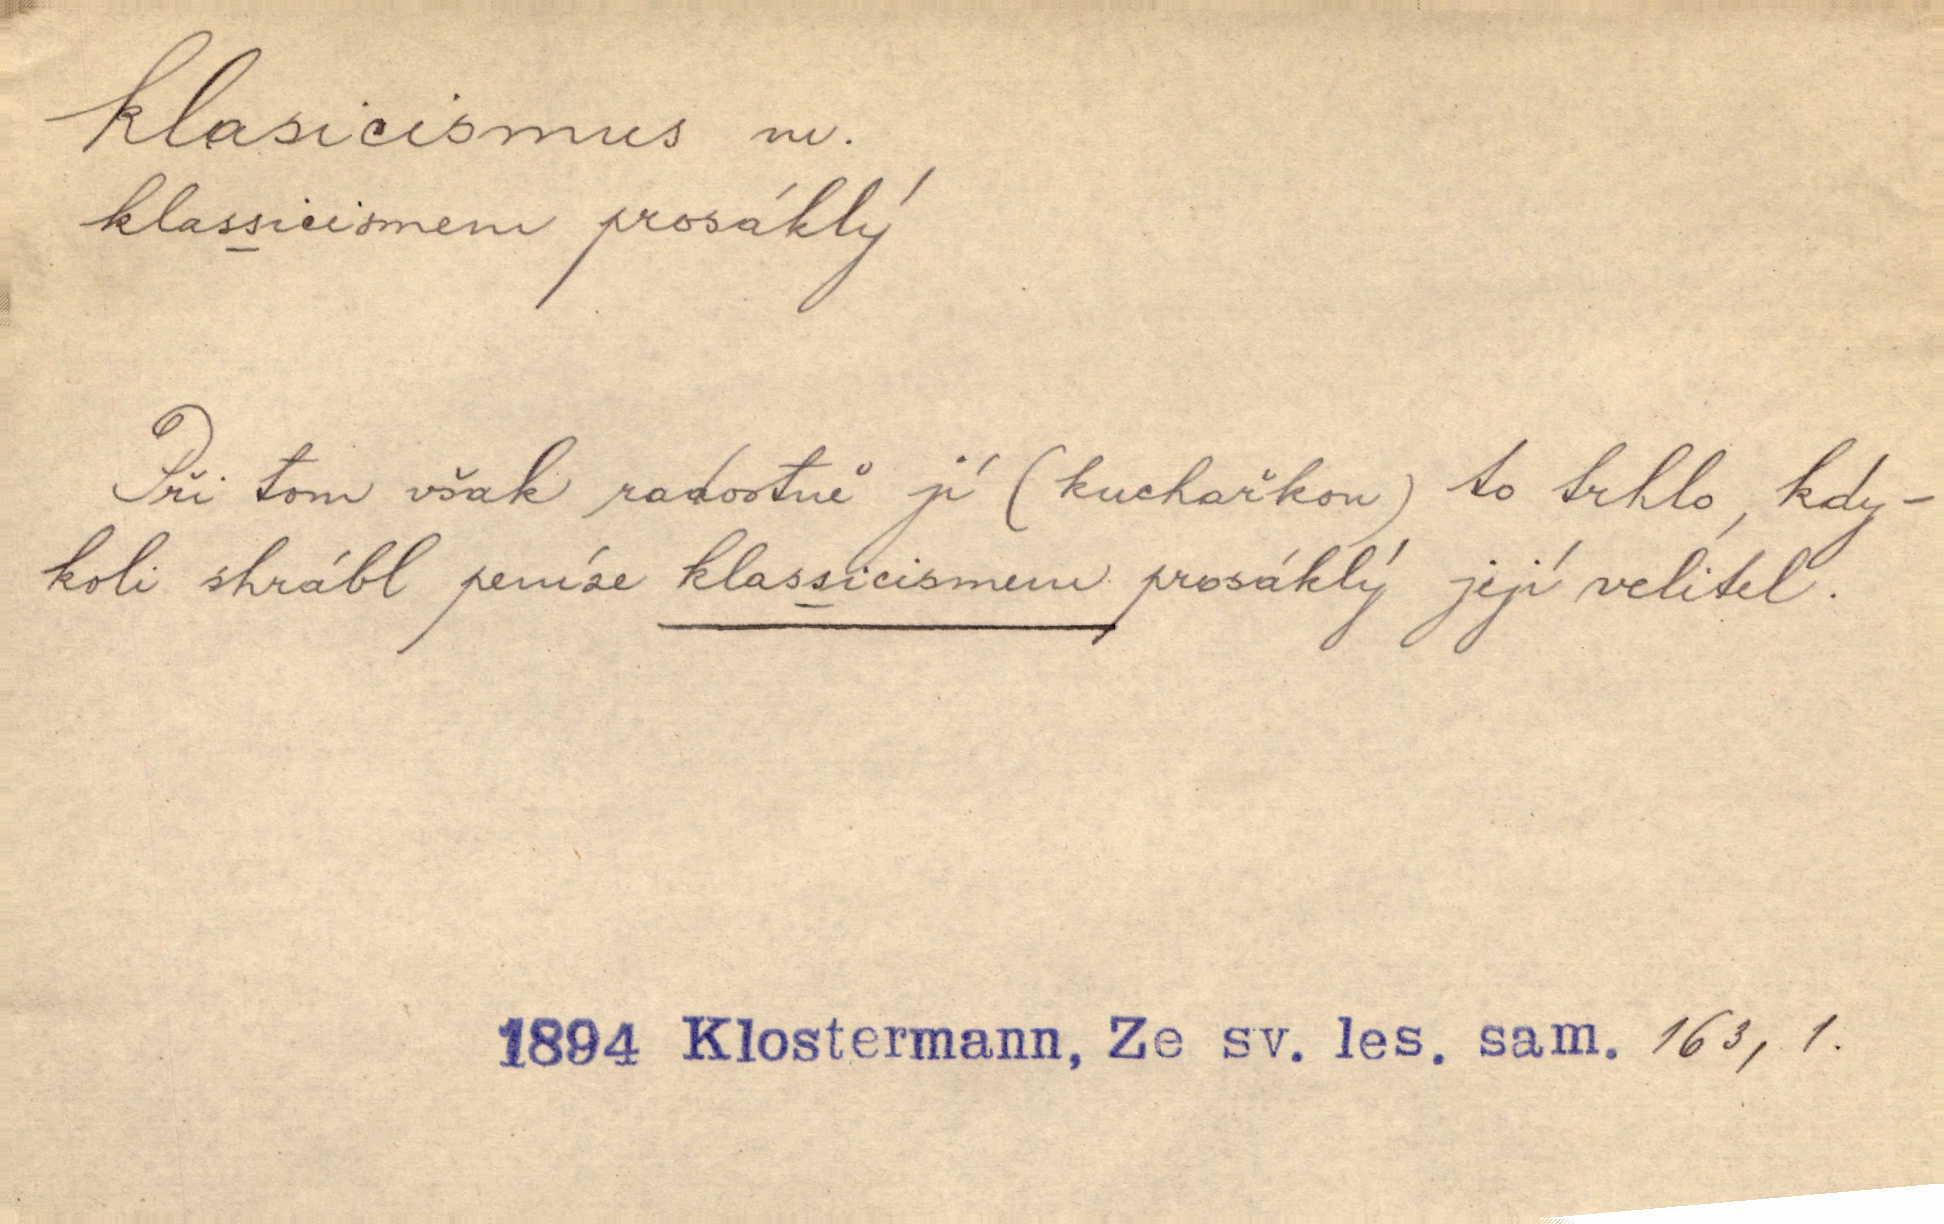 klasicismus m.
klassicismem prosáklý
Při tom však radostně jí (kuchařkou) to trhlo, kdy-
koli shrábl peníze klassicismem prosáklý její velitel.
1894 Klostermann, Ze sv. les. sam. 163, 1.